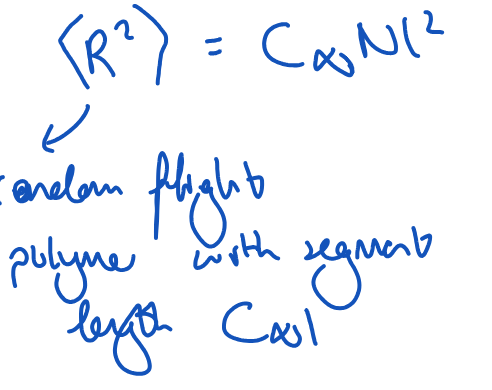 ⟨R²⟩ = C∞Nl²
random flight
polymer with segment
length C∞l